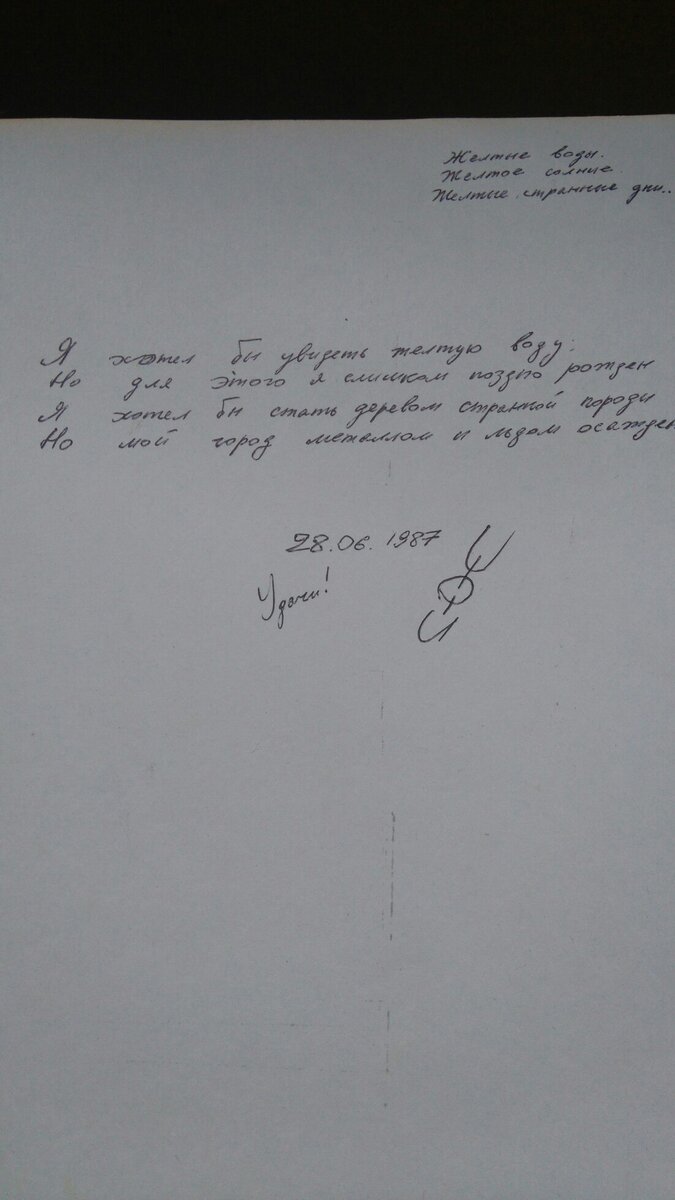 Желтые воды.
Желтое солнце.
Желтые странные дни..
Я хотел бы увидеть желтую воду:
Но для этого я слишком поздно рожден
Я хотел бы стать деревом странной породы
Но мой город металлом и льдом осажден
28.06.1987
Удачи!